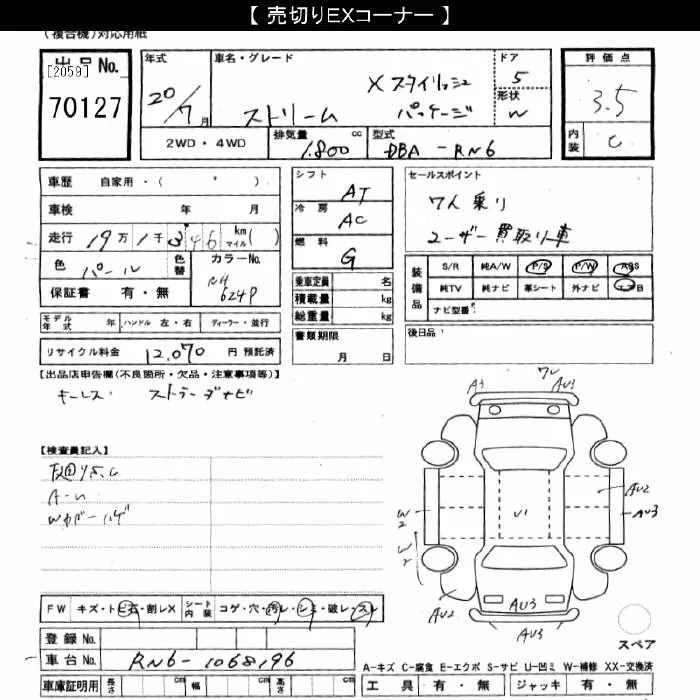 【 売切りEXコーナー 】
(複合機)対応用紙
出品No.
[2059]
70127
年式
20/7月
車名・グレード
ストリーム
X スタイリッシュ
パッケージ
ドア
5
形状
W
評価点
3.5
内装
C
2WD・4WD
排気量 cc
1.800
型式
DBA - RN6
車歴 自家用・( )
車検 年 月
走行 19万1千346 km マイル( )
色 パール
色替
カラーNo.
NH
624P
保証書 有・無
シフト
AT
冷房
AC
燃料
G
乗車定員 名
積載量 kg
総重量 kg
書類期限
月 日
セールスポイント
7人乗り
ユーザー買取り車
装備品
S/R 純A/W P/S P/W ABS
純TV 純ナビ 革シート 外ナビ
ナビ型番
後日品
モデル年式 年 ハンドル 左・右 ディーラー・並行
リサイクル料金 12,070 円 預託済
【出品店申告欄(不良箇所・欠品・注意事項等)】
キーレス ストラーダナビ
【検査員記入】
FW キズ・トビ石・割レX シート内装 コゲ・穴・汚レ・シミ・破レ・スレ
登録No.
車台No. RN6-1068196
車庫証明用 長さ cm 幅 cm 高さ cm
A3
AU3
W2
U1
AU2
AU3
W2
AU2
AU3
AU3
スペア
A-キズ C-腐食 E-エクボ S-サビ U-凹ミ W-補修 XX-交換済
工具 有・無 ジャッキ 有・無